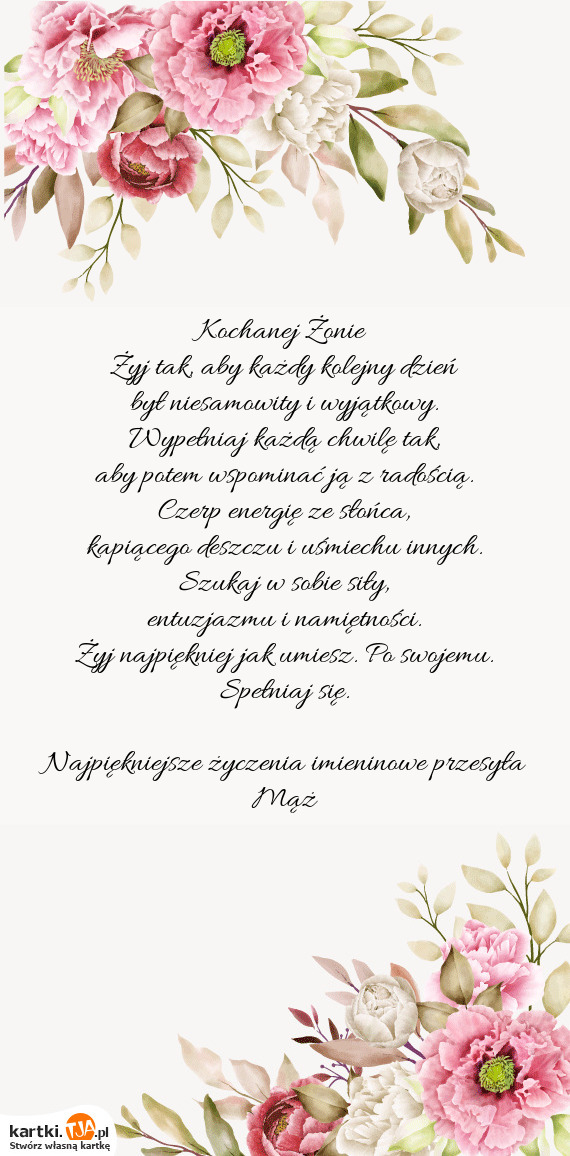 Kochanej Żonie
Żyj tak, aby każdy kolejny dzień
był niesamowity i wyjątkowy.
Wypełniaj każdą chwilę tak,
aby potem wspominać ją z radością.
Czerp energię ze słońca,
kapiącego deszczu i uśmiechu innych.
Szukaj w sobie siły,
entuzjazmu i namiętności.
Żyj najpiękniej jak umiesz. Po swojemu.
Spełniaj się.
Najpiękniejsze życzenia imieninowe przesyła
Mąż
kartki.TJA.pl
Stwórz własną kartkę